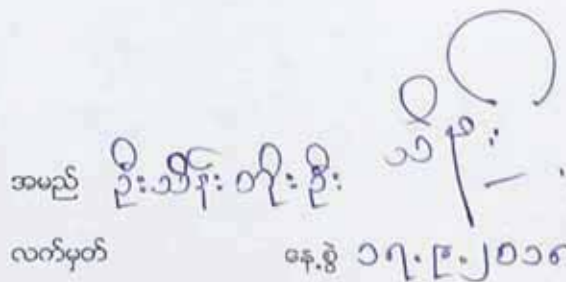 အမည် ဦးသိန်းတိုးဦး
လက်မှတ် နေ့စွဲ ၁၇.၉.၂၀၁၈